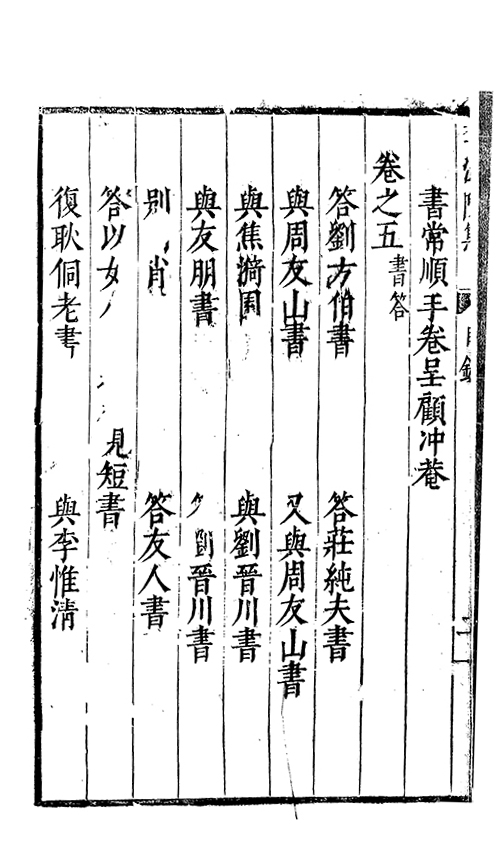 書常順手卷呈顧冲菴
卷之五 書答
答劉方伯書 答莊純夫書
與周友山書 又與周友山書
與焦漪園 與劉晉川書
與友朋書 劉晉川書
別 肖 答友人書
答以女人 見短書
復耿侗老書 與李惟清
目錄